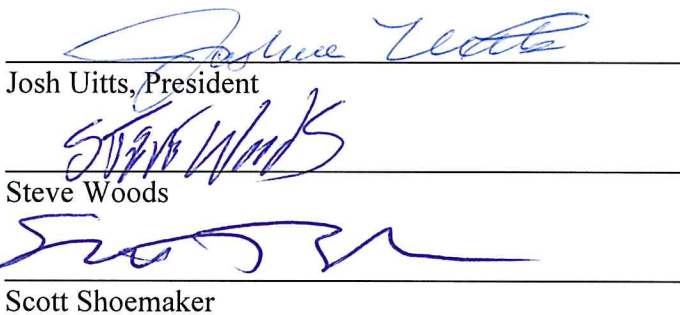 Joshua Uitts
Josh Uitts, President
STEVE WOODS
Steve Woods
Scott Shoemaker